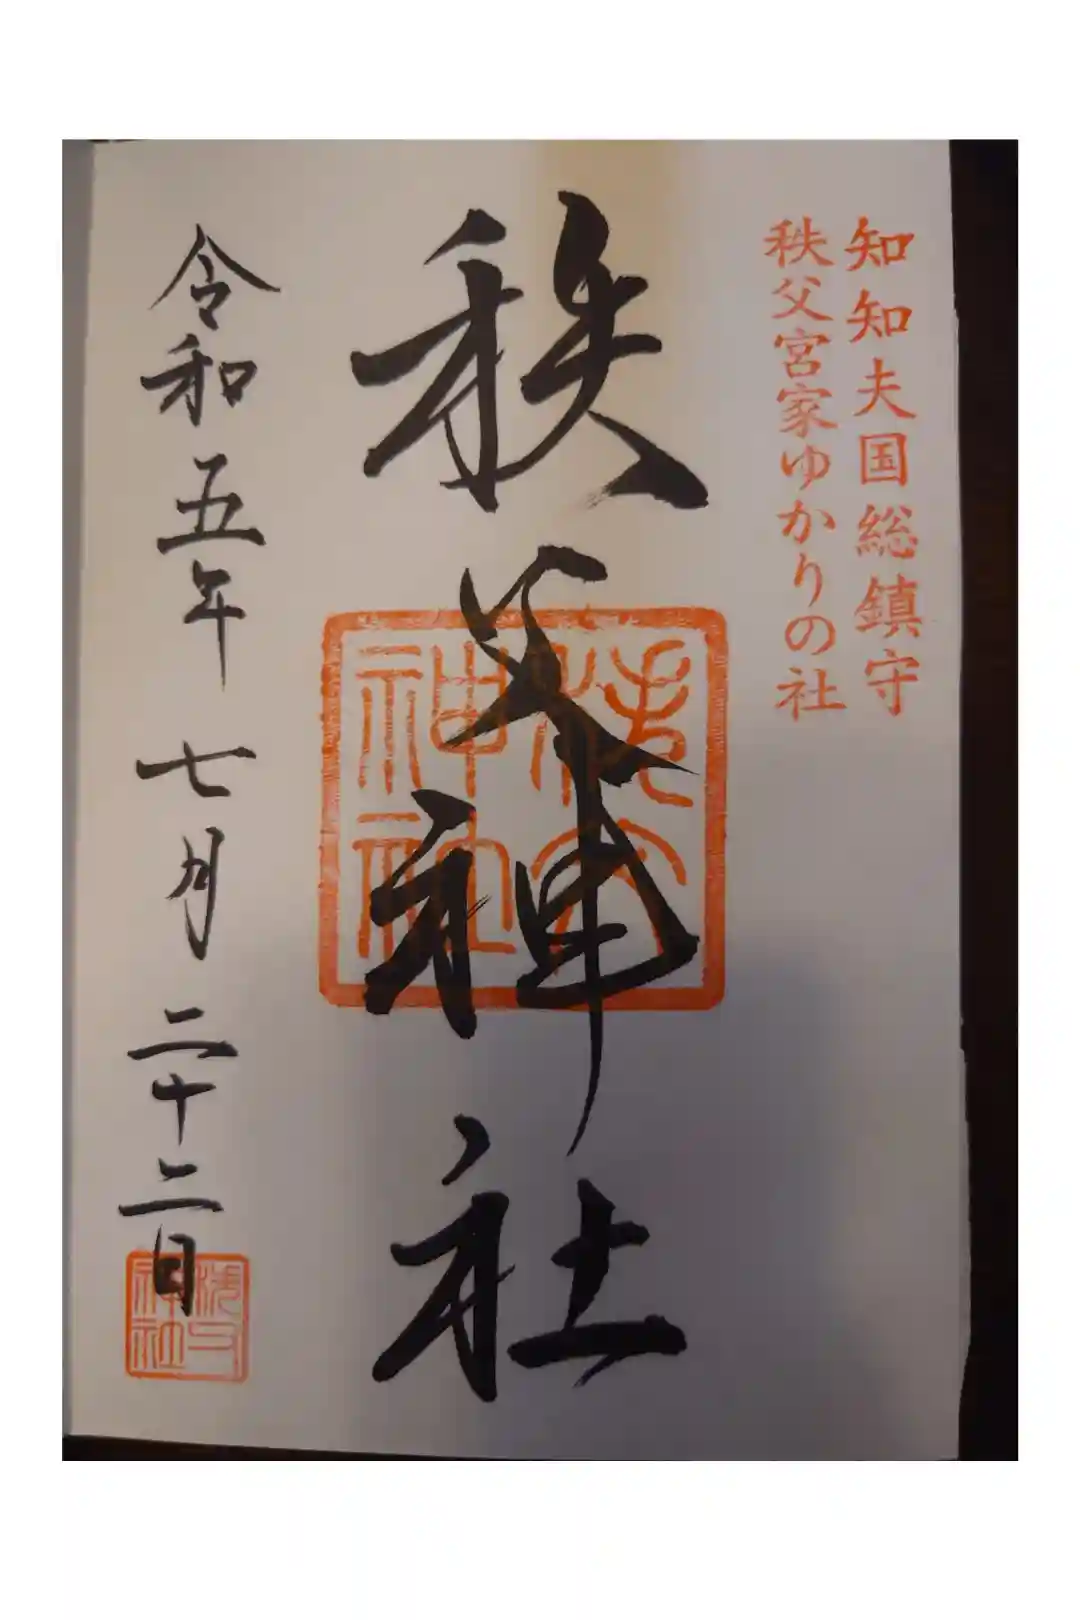 知知夫国総鎮守
秩父宮家ゆかりの社
秩父神社
秩父神社
令和五年 七月 二十二日
秩父神社